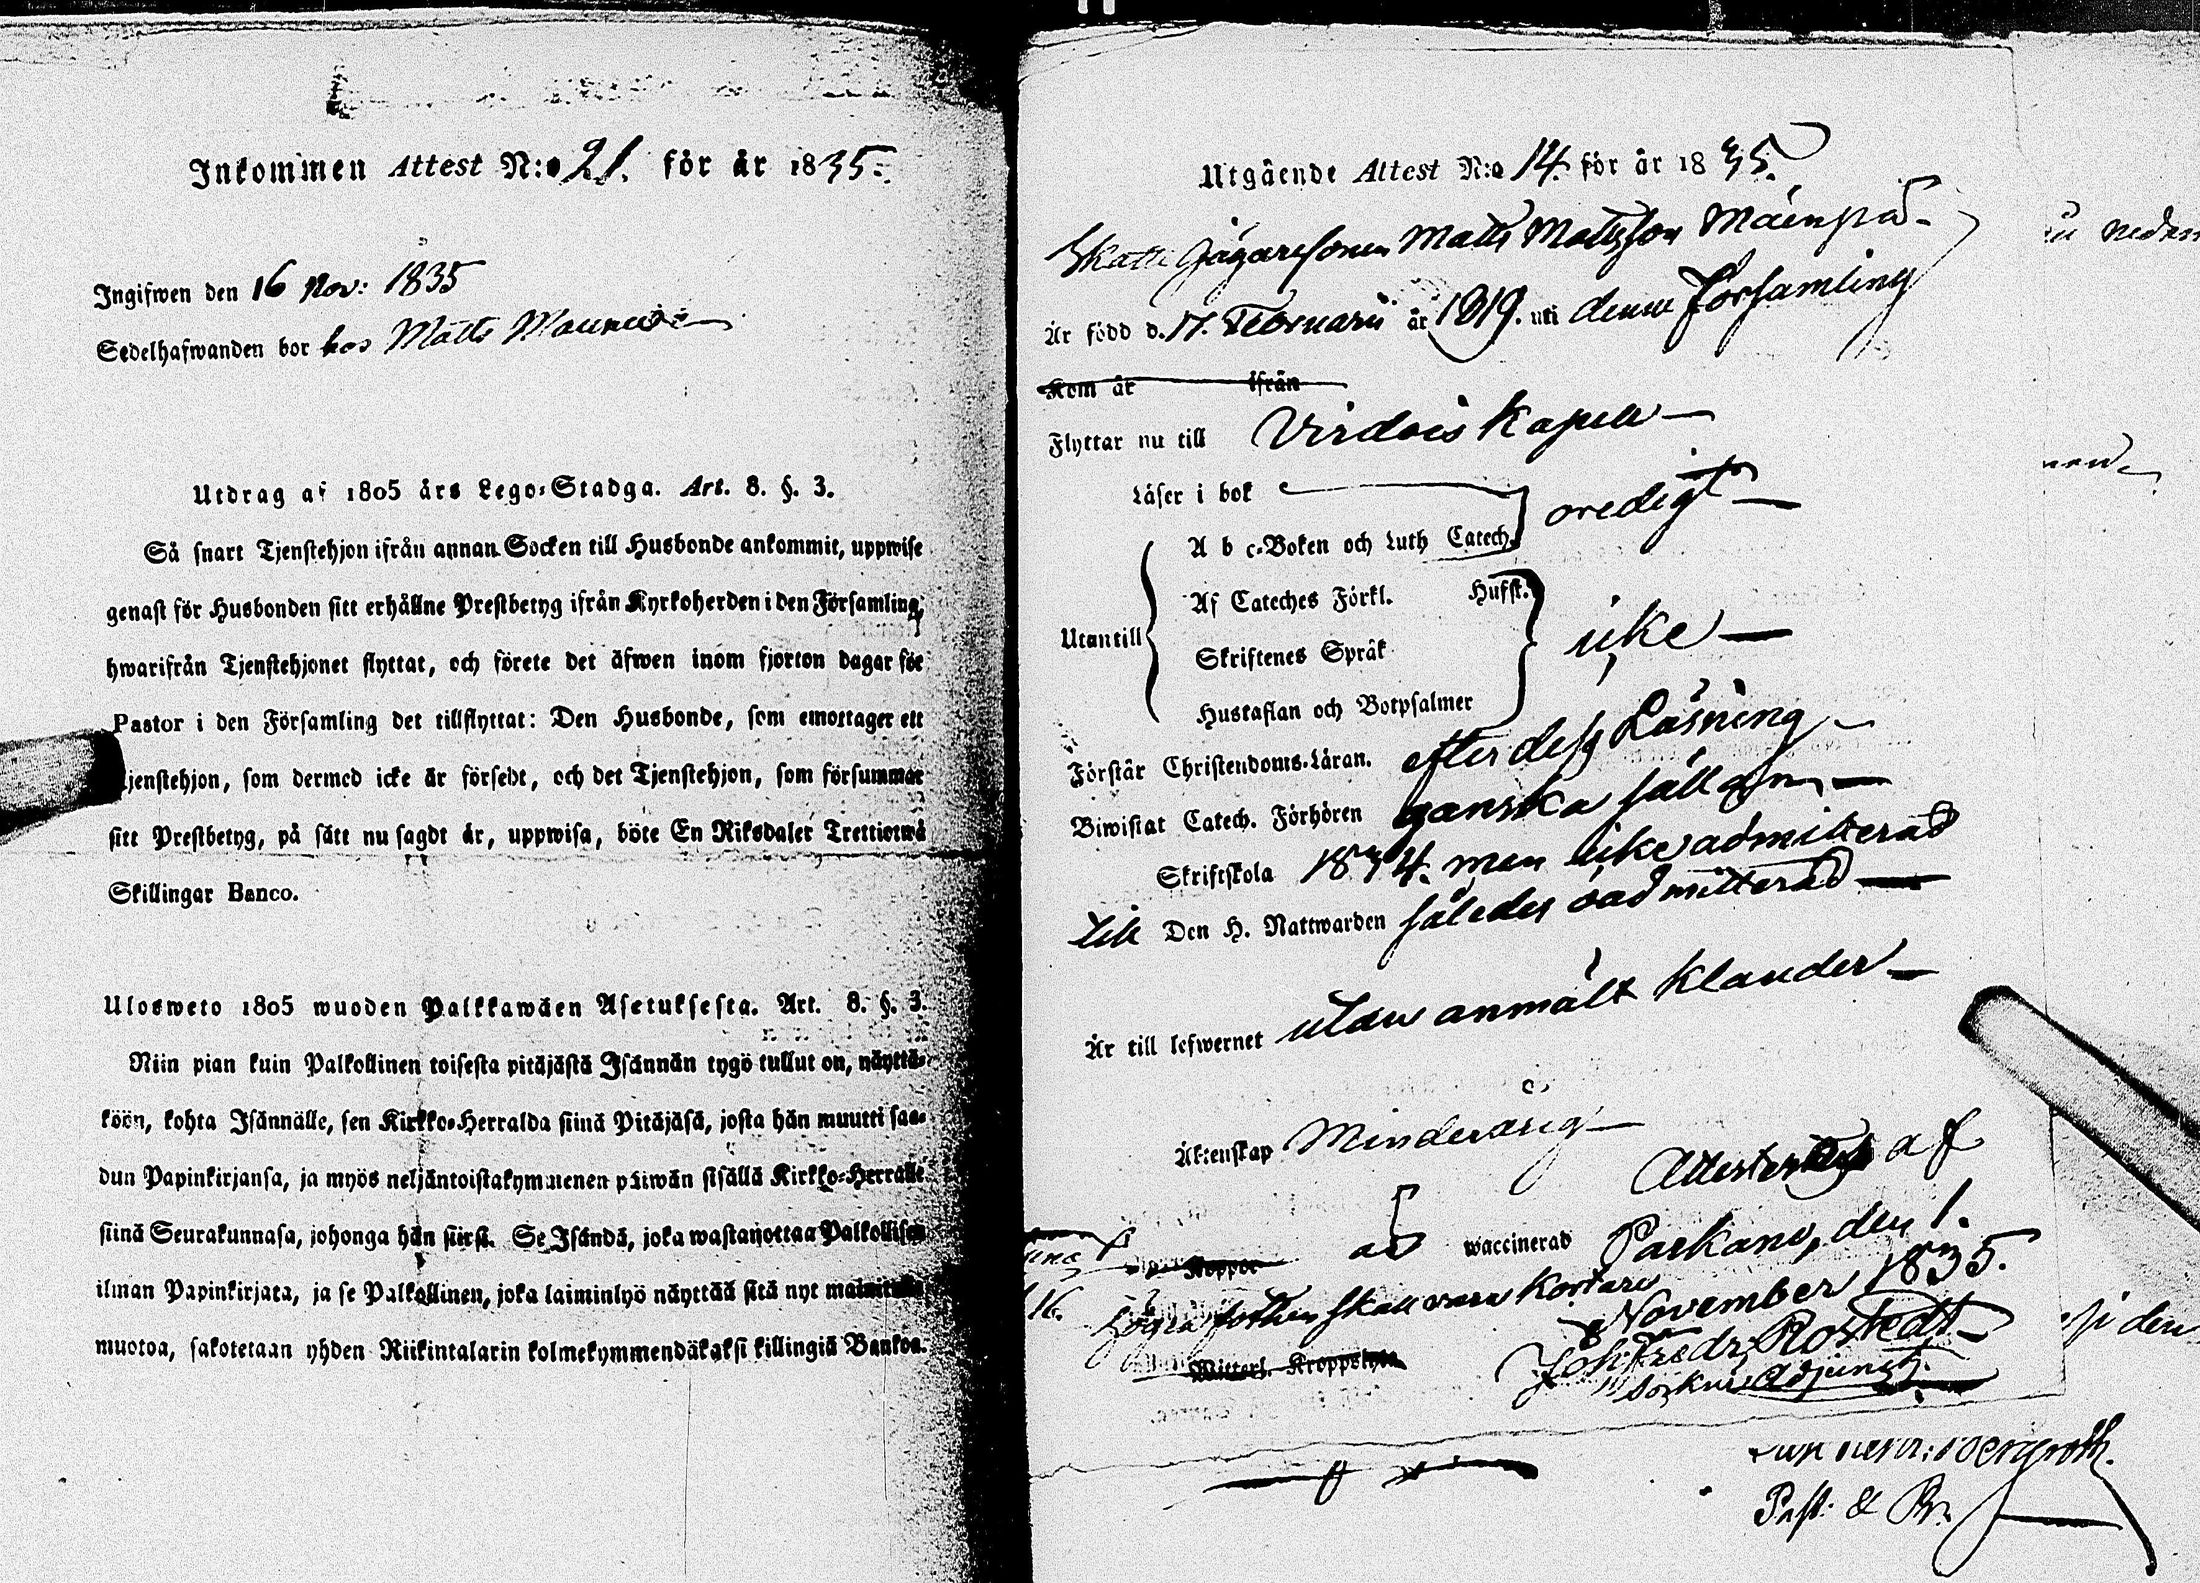 Inkommen Attest N:o 21. för år 1835.
Ingifwen den 16 Nov: 1835
Sedelhafwanden bor hos Matts
Utdrag af 1805 års Lego-Stadga. Art. 8. §. 3.
Så snart Tjenstehjon ifrån annan Socken till Husbonde ankommit, uppwise
genast för Husbonden sitt erhållne Prestbetyg ifrån Kyrkoherden i den Församling,
hwarifrån Tjenstehjonet flyttat, och förete det äfwen inom fjorton dagar för
Pastor i den Församling det tillflyttat: Den Husbonde, som emottager ett
Tjenstehjon, som dermed icke är försedt, och det Tjenstehjon, som försummar
sitt Prestbetyg, på sätt nu sagdt är, uppwisa, böte En Riksdaler Trettiotwå
Skillingar Banco.
Ulosweto 1805 wuoden Palkkawäen Asetuksesta. Art. 8. §. 3.
Niin pian kuin Palkollinen toisesta pitäjästä Isännän tygö tullut on, näyttä-
köön, kohta Isännälle, sen Kirkko-Herralda siinä Pitäjäsä, josta hän muutti saa-
dun Papinkirjansa, ja myös neljäntoistakymmenen päiwän sisällä Kirkko-Herralle
siinä Seurakunnasa, johonga hän siirsi. Se Isändä, joka wastanottaa Palkollisen
ilman Papinkirjata, ja se Palkollinen, joka laiminlyö näyttää sitä nyt mainitulla
muotoa, sakotetaan yhden Riikintalarin kolmekymmendäkaksi killingiä Bankoa.
Utgående Attest N:o 14. för år 1835.
Skatte Jägaresonen Matts Mattsson Mäenpää
Är född d. 17. Februarii år 1819. uti denna Församling
Kom år ifrån
Flyttar nu till Virdois Kapell
Läser i bok
oredigt
A b c-Boken och Luth Catech.
Af Cateches Förkl. Husst.
Utantill
icke
Skriftenes Språk
Hustaflan och Botpsalmer
Förstår Christendoms-Läran. efter dess Läsning
Biwistat Catech. Förhören ganska sällan
Skriftskola 1834. men icke admitterad
till Den H. Nattwarden således oadmitterad
Är till lefwernet utan anmält klander
Äktenskap Minderårig
Attesteras af
waccinerad Parkano, den 1.
Koppor
November 1835.
Högra foten skall vara kortare
Joh: Fredr: Rostedt
Adjunct.
Kroppslyte
Past: &